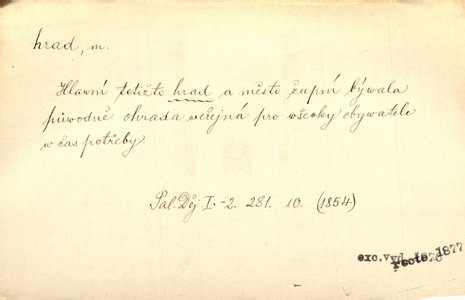 hrad, m.
Hlavní totižto hrad a město župní bývala
původně ohrada weřejná pro wšecky obywatele
w čas potřeby.
Pal. Děj. I.-2. 281. 10. (1854)
exc. vyd. 1877